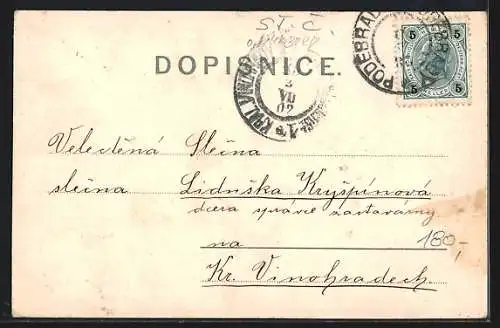 ST. Č.
DOPISNICE.
PODĚBRAD
5 5
5 5
KRÁL. VINOHRADY
2
VII
02
Velectěná Slečna
slečna Lidnška Kryšpínová
dcera správce zastavárny
na
180,-
Kr. Vinohradech.